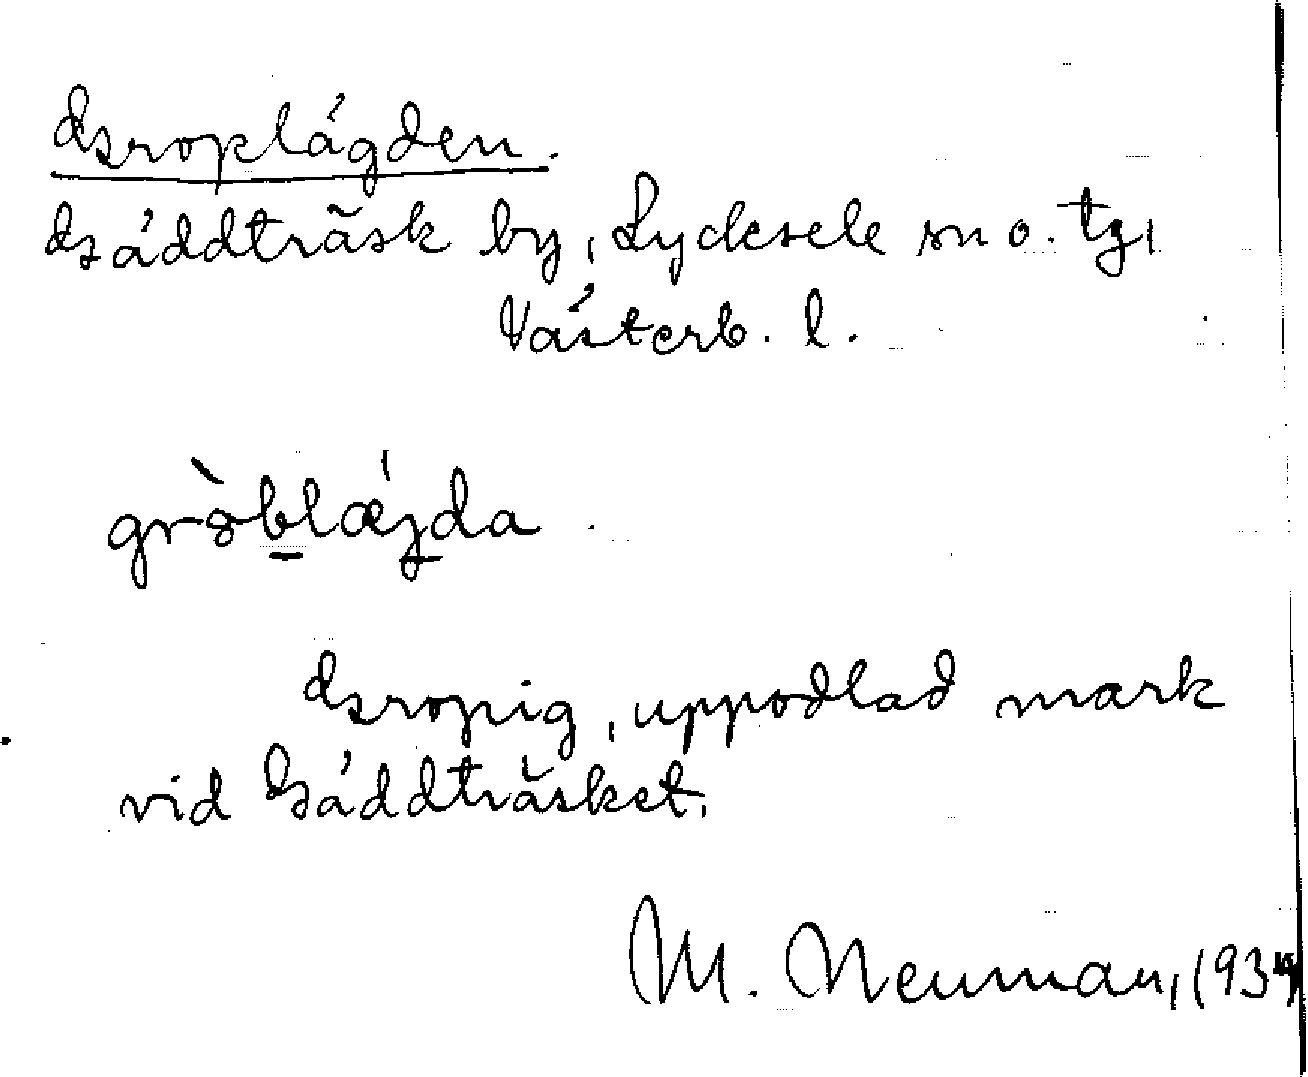 Groplägden.
Gäddträsk by, Lycksele sn o. tg,
Västerb. l.
gròblǽjda
Gropig, uppodlad mark
vid Gäddträsket.
M. Neuman,